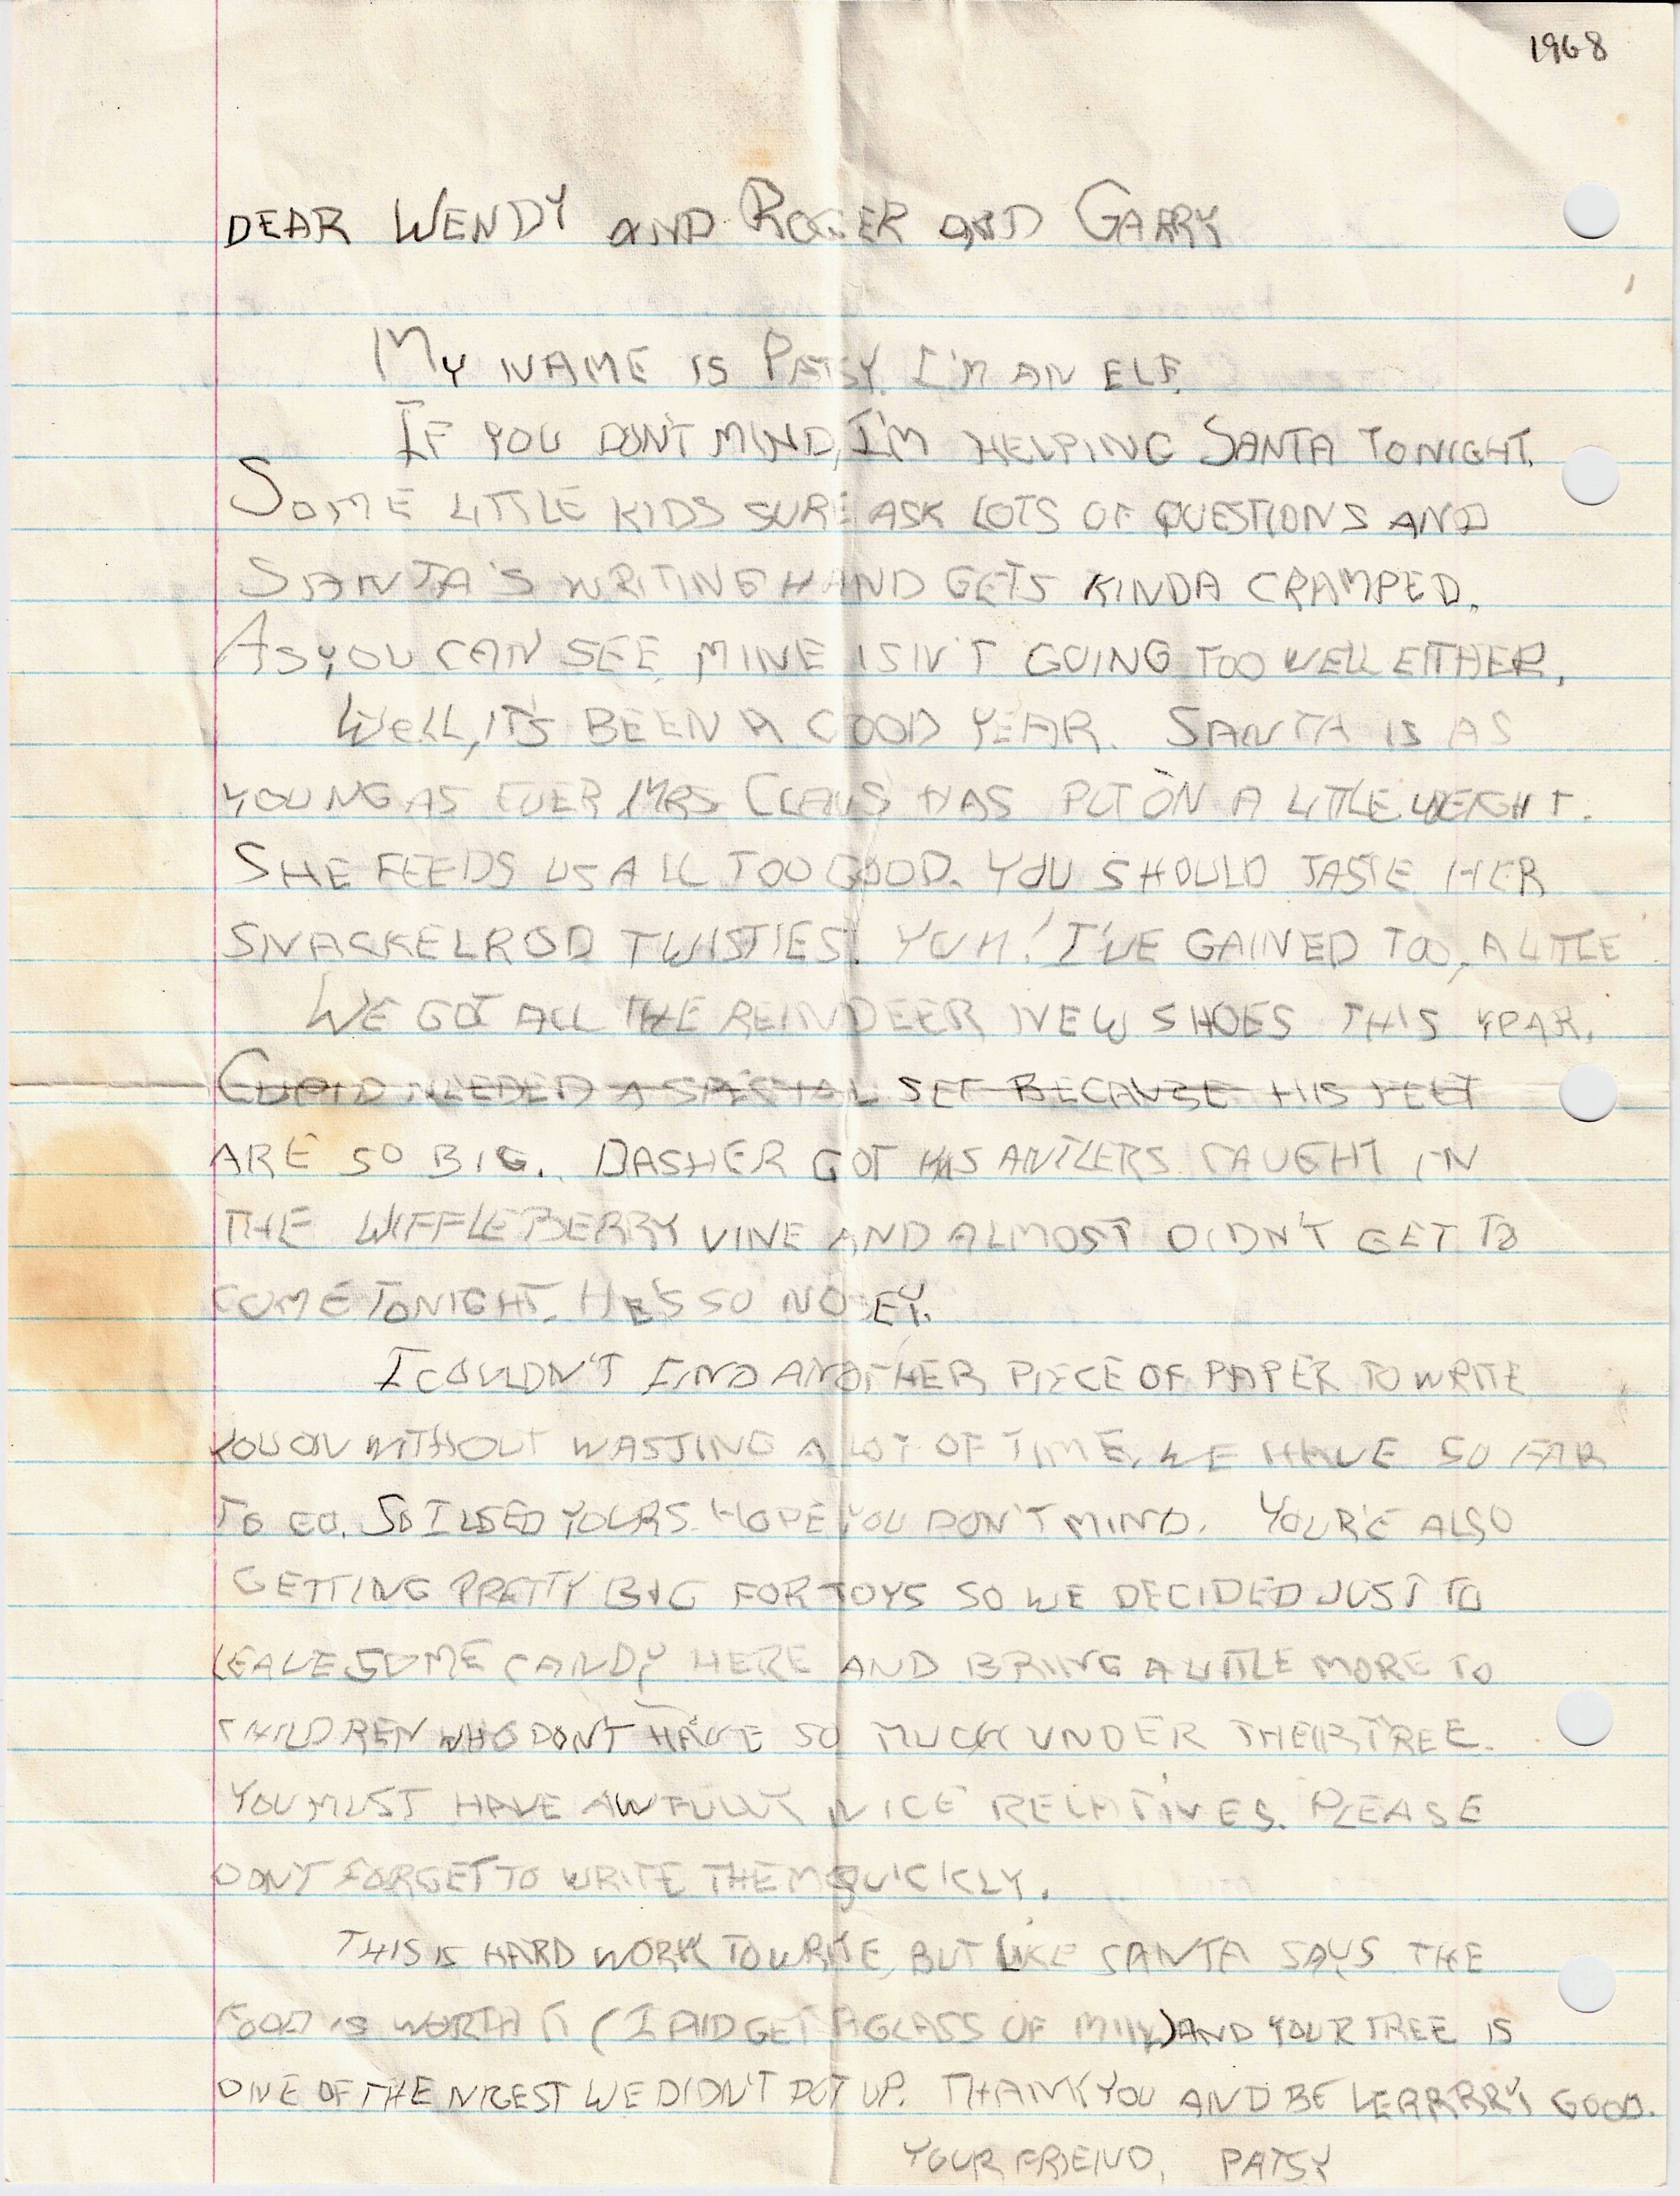 1968
DEAR WENDY AND ROGER AND GARRY
MY NAME IS PATSY. I'M AN ELF.
IF YOU DON'T MIND, I'M HELPING SANTA TONIGHT.
SOME LITTLE KIDS SURE ASK LOTS OF QUESTIONS AND
SANTA'S WRITING HAND GETS KINDA CRAMPED.
AS YOU CAN SEE, MINE ISN'T GOING TOO WELL EITHER.
WELL, IT'S BEEN A GOOD YEAR. SANTA IS AS
YOUNG AS EVER MRS CLAUS HAS PUT ON A LITTLE WEIGHT.
SHE FEEDS US ALL TOO GOOD. YOU SHOULD TASTE HER
SNACKELROD TWISTIES! YUM! I'VE GAINED TOO, A LITTLE
WE GOT ALL THE REINDEER NEW SHOES THIS YEAR.
CUPID NEEDED A SPECIAL SET BECAUSE HIS FEET
ARE SO BIG. DASHER GOT HIS ANTLERS CAUGHT IN
THE WIFFLEBERRY VINE AND ALMOST DIDN'T GET TO
COME TONIGHT. HE'S SO NOSEY.
I COULDN'T FIND ANOTHER PIECE OF PAPER TO WRITE
YOU ON WITHOUT WASTING A LOT OF TIME. WE HAVE SO FAR
TO GO. SO I USED YOURS. HOPE YOU DON'T MIND. YOUR'E ALSO
GETTING PRETTY BIG FOR TOYS SO WE DECIDED JUST TO
LEAVE SOME CANDY HERE AND BRING A LITTLE MORE TO
CHILDREN WHO DON'T HAVE SO MUCH UNDER THEIR TREE.
YOU MUST HAVE AWFULLY NICE RELATIVES. PLEASE
DON'T FORGET TO WRITE THEM QUICKLY.
THIS IS HARD WORK TO WRITE, BUT LIKE SANTA SAYS THE
FOOD IS WORTH IT (I DID GET A GLASS OF MILK) AND YOUR TREE IS
ONE OF THE NICEST WE DIDN'T PUT UP. THANK YOU AND BE VERRRRY GOOD.
YOUR FRIEND, PATSY